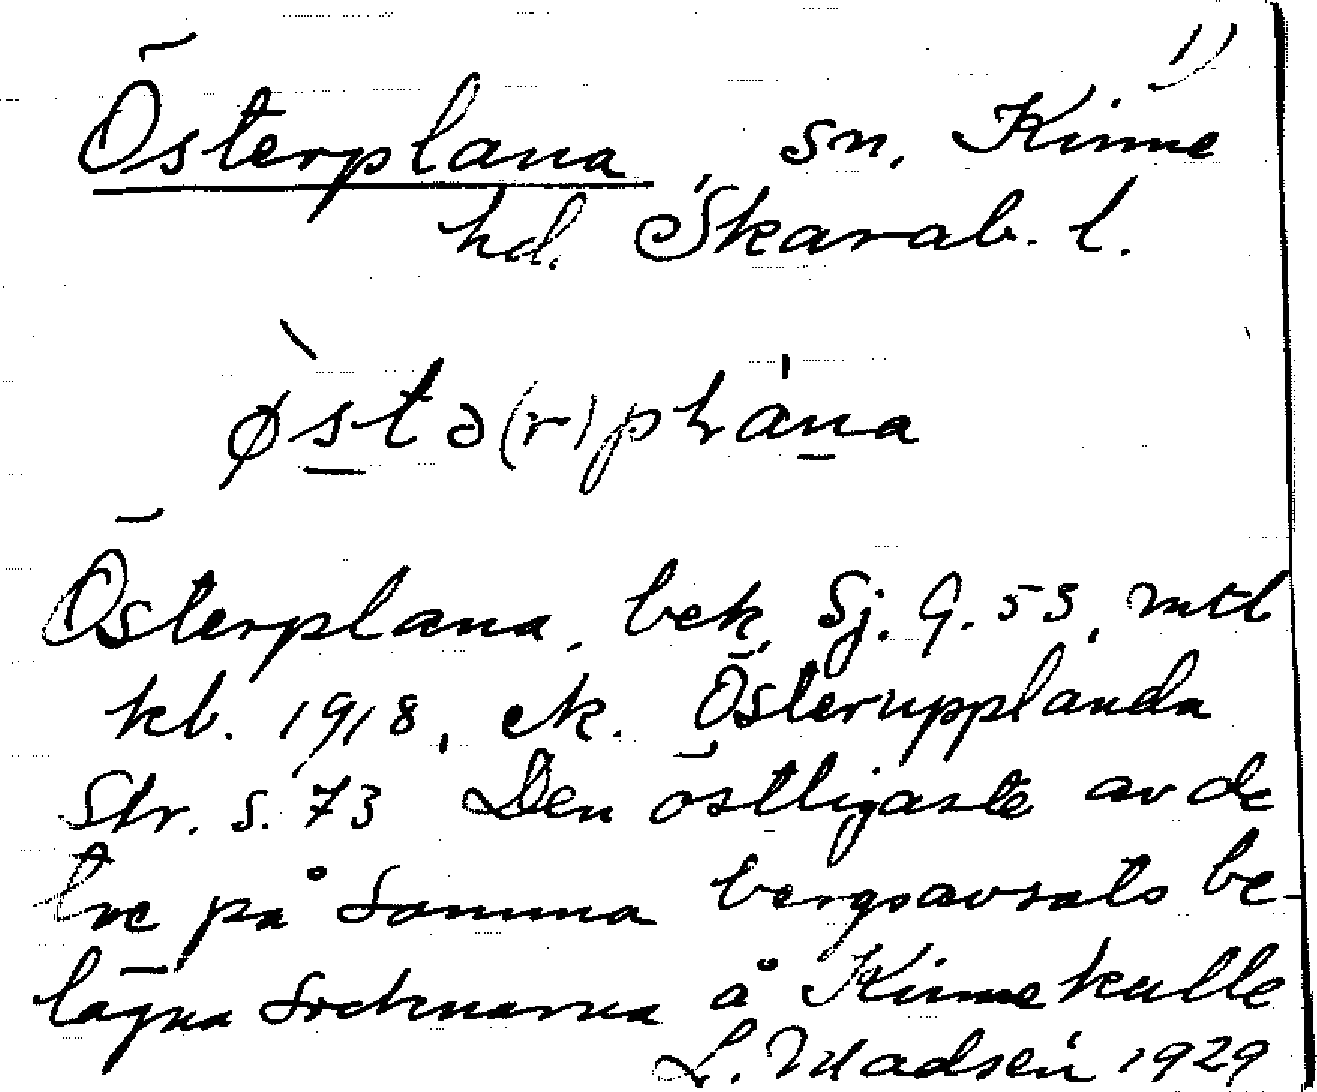 1)
Österplana, sn, Kinne
hd. Skarab. l.
ø̀stə(r)pɫána
Österplana, bek. Sj. 9.53, mtl
kb. 1918, ek. Österupplanda
Str. s. 73 Den östligaste av de
tre på samma bergsavsats be-
lägna socknarna å Kinnekulle
L. Madsén 1929